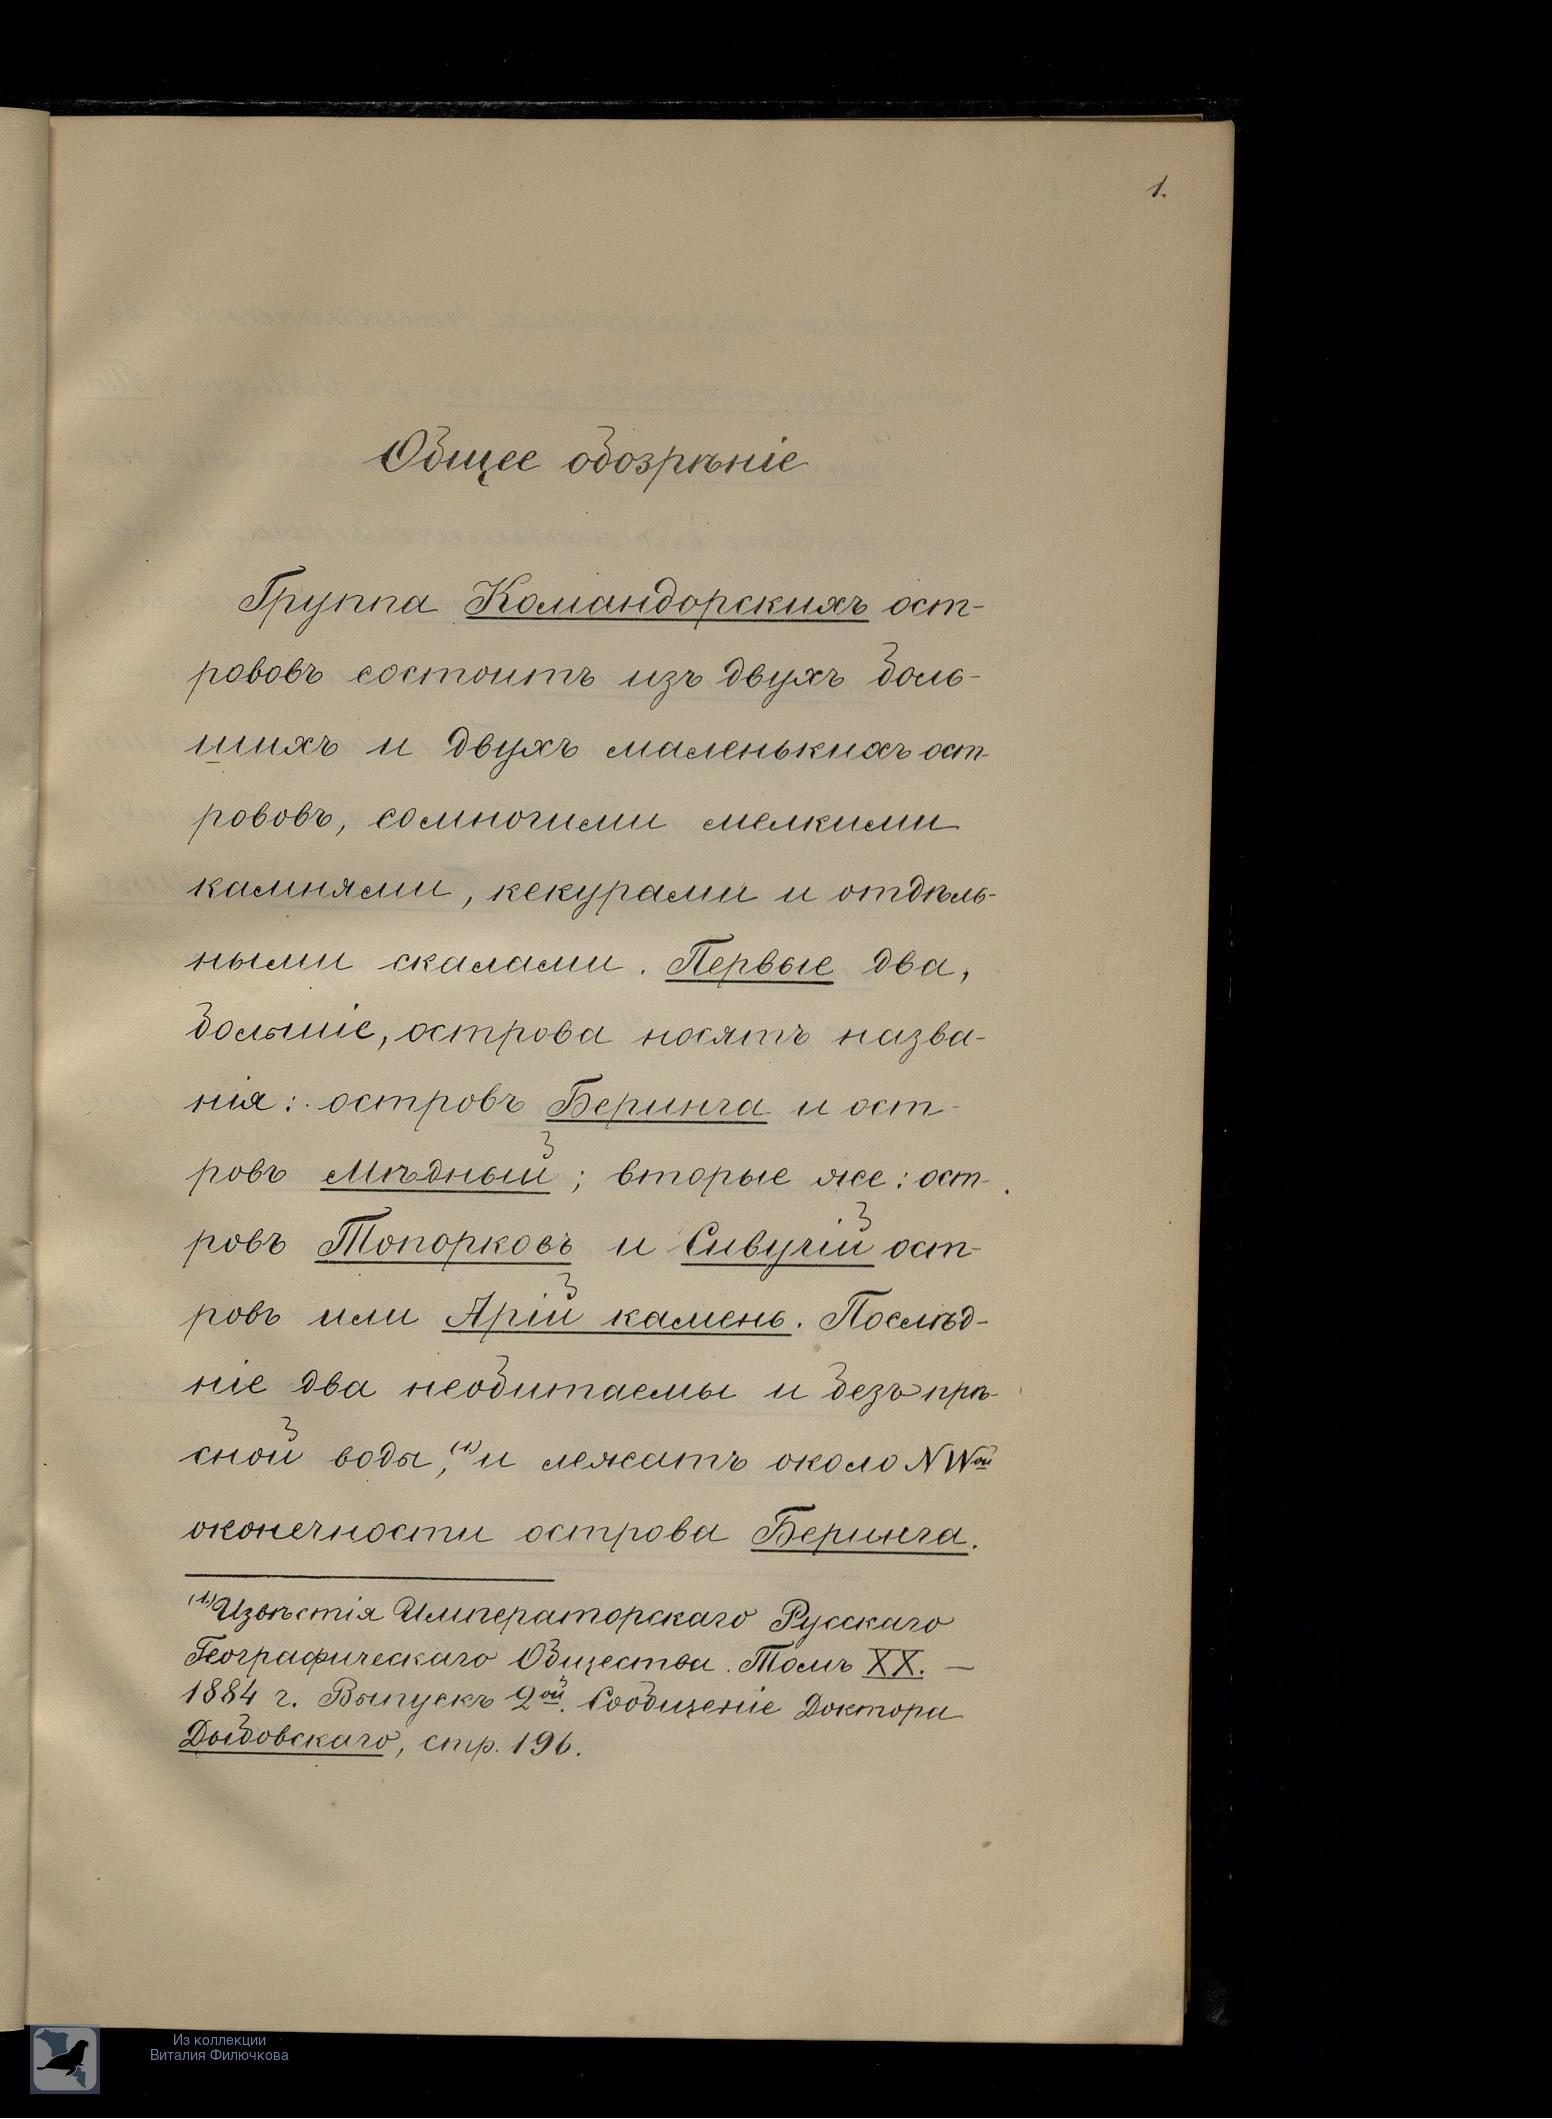 1.
Общее обозрѣніе
Группа Командорскихъ ост-
рововъ состоитъ изъ двухъ боль-
шихъ и двухъ маленькихъ ост-
рововъ, со многими мелкими
камнями, кекурами и отдѣль-
ными скалами. Первые два,
большіе, острова носятъ назва-
нія: островъ Беринга и ост-
ровъ Мѣдный; вторые же: ост-
ровъ Топорковъ и Сивучій ост-
ровъ или Арій камень. Послѣд-
ніе два необитаемы и безъ прѣ-
сной воды,(1.) и лежатъ около NWой
оконечности острова Беринга.
(1.) Извѣстія Императорскаго Русскаго
Географическаго Общества. Томъ XX. —
1884 г. Выпускъ 2ой. Сообщеніе Доктора
Дыбовскаго, стр. 196.
Из коллекции
Виталия Филючкова